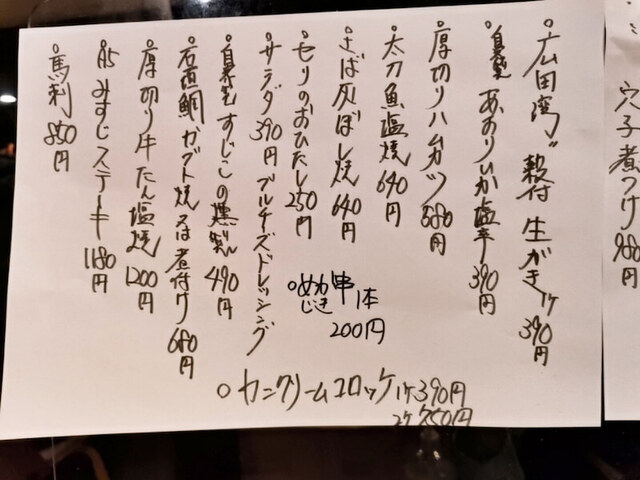 穴子煮つけ 980円
○広田湾殻付生がき1ケ390円
○自家製あおりいか塩辛390円
○厚切りハムカツ580円
○太刀魚塩焼640円
○さば灰ぼし焼640円
○セリのおひたし250円
○サラダ390円ブルチーズドレッシング
○自家製すじこの燻製490円
○石垣鯛カブト焼又は煮付け680円
○厚切り牛たん塩焼1200円
○A5みすじステーキ1180円
○馬刺850円
○めかじき串1本
200円
○カニクリームコロッケ1ケ390円
2ケ750円